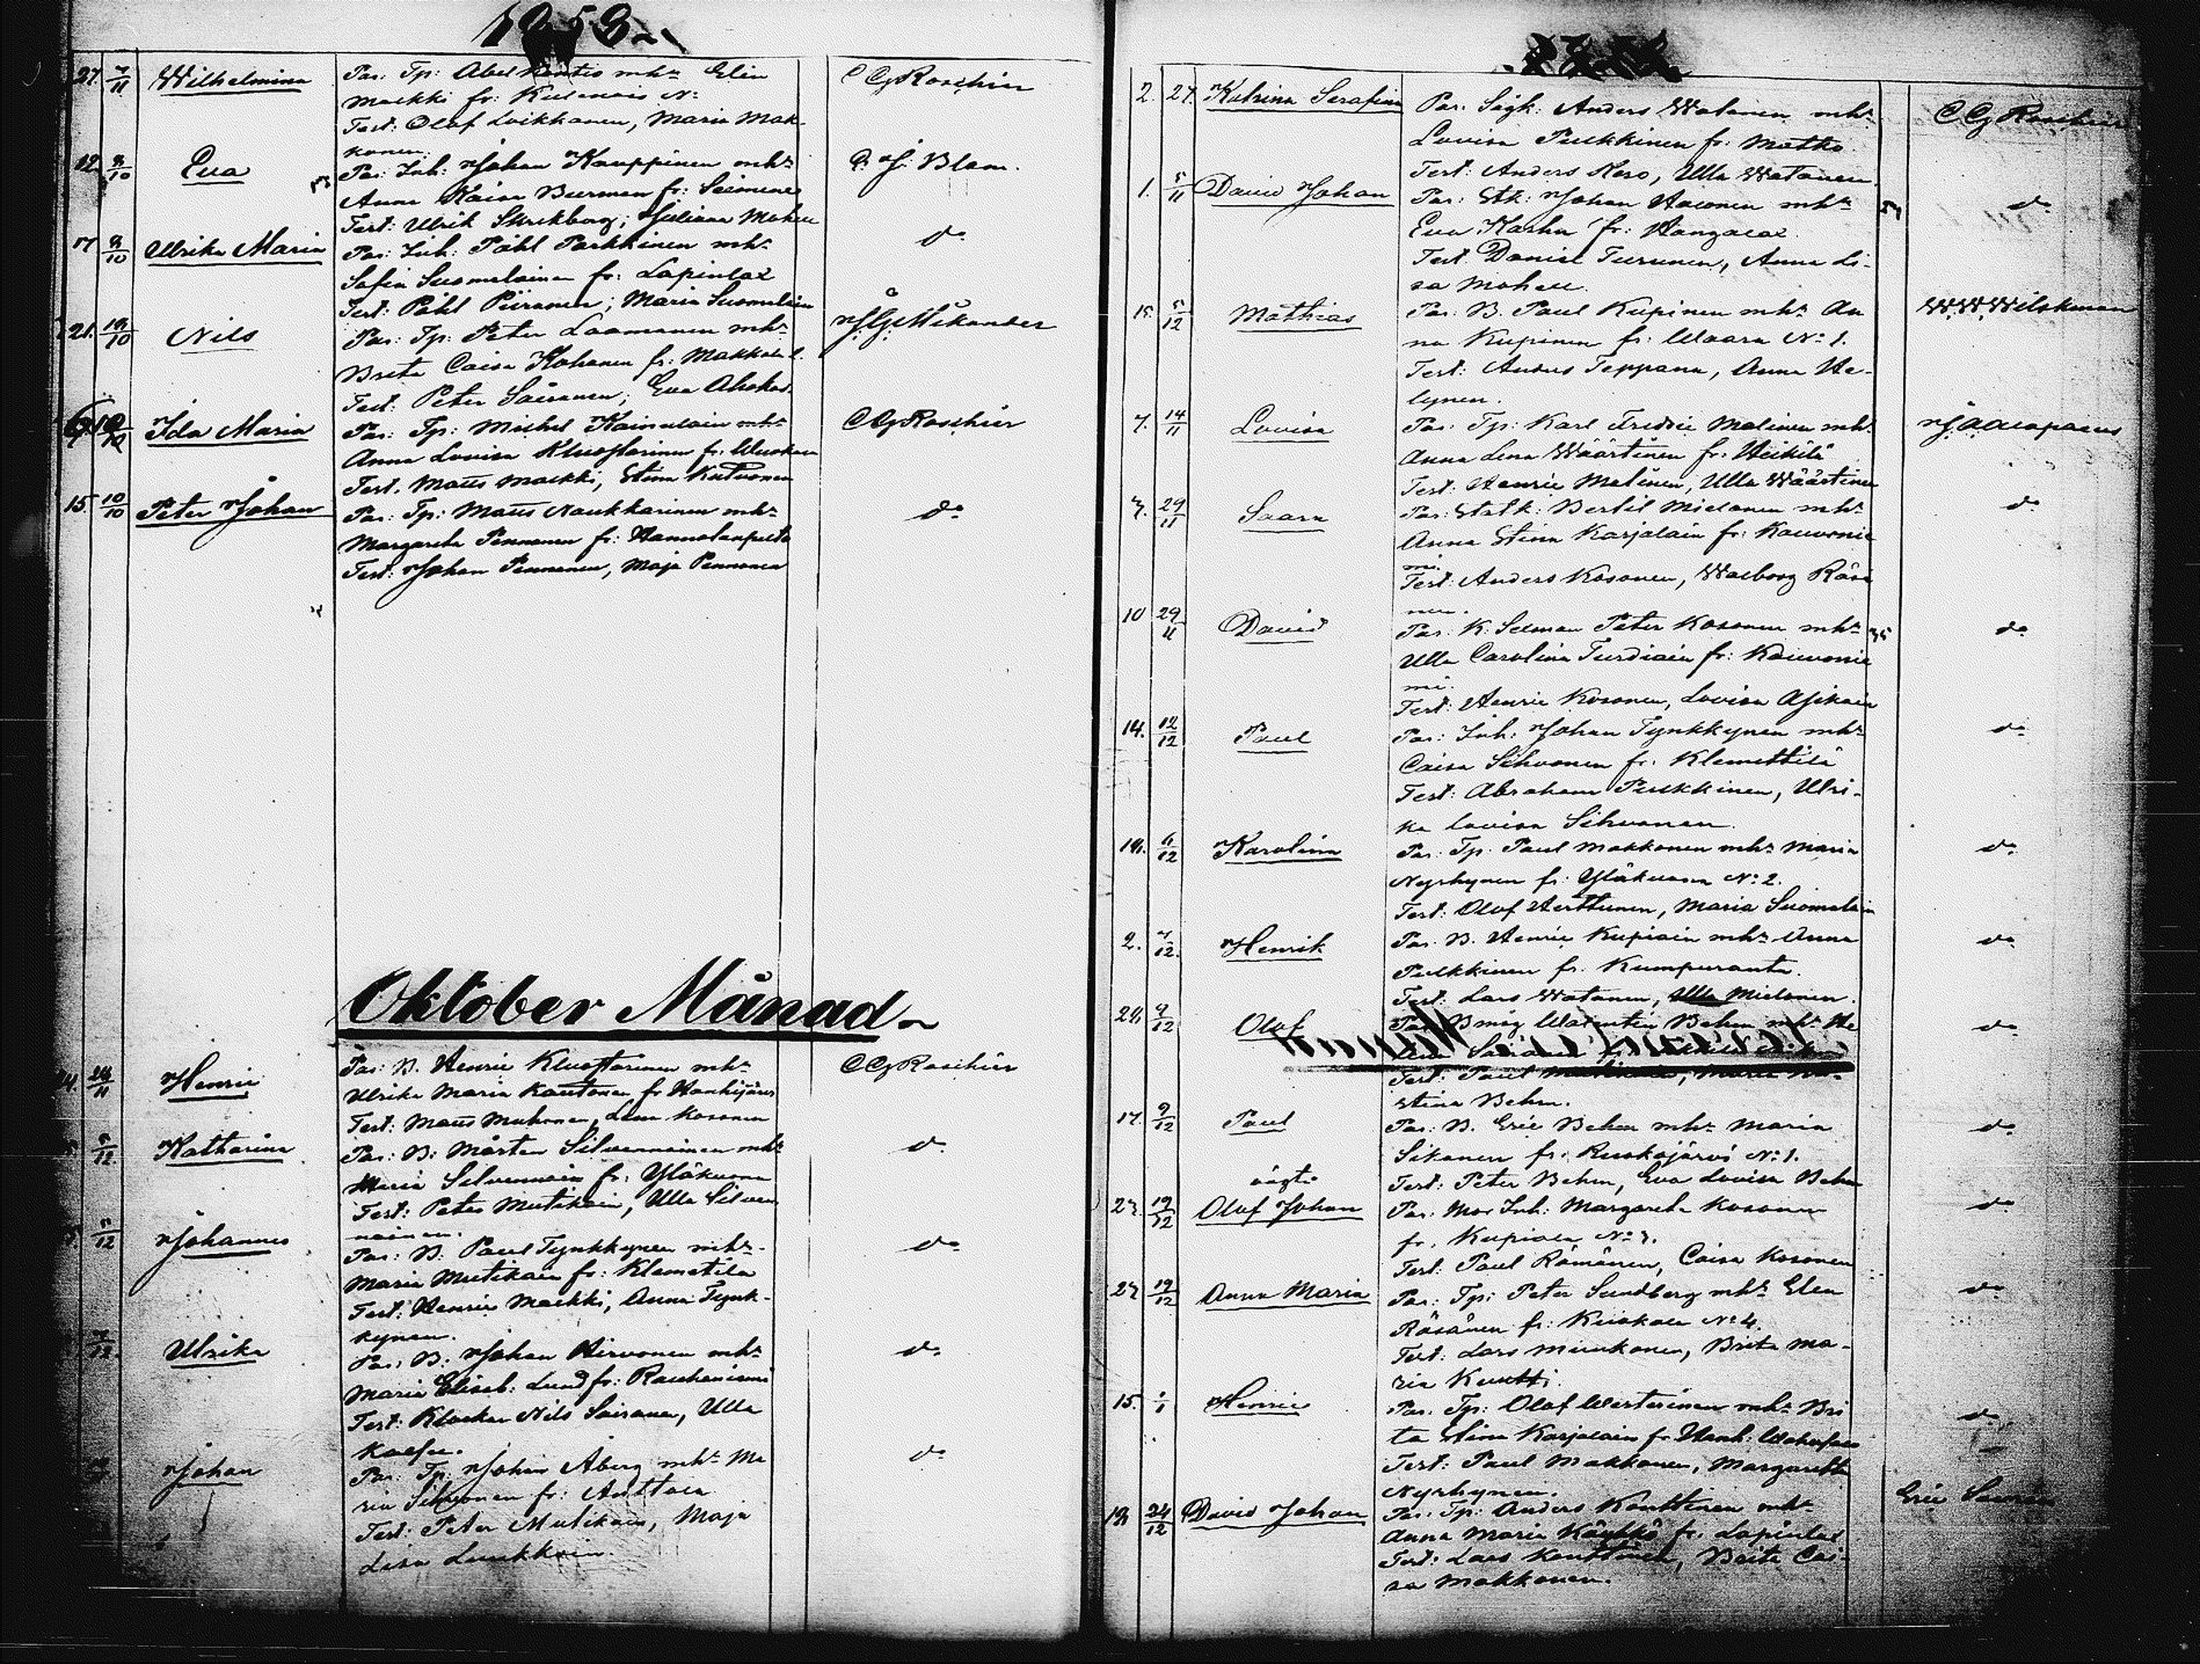 1853
27. 7/11 Wilhelmina Par: Tp: Abel Kontio mhr Elin C G Roschier
Maekki fr: Kulmais No
Test: Olof Loikkanen, Maria Mak-
konen.
12. 2/10 Eva Par: Inh: Johan Kauppinen mhr C. J. Blom.
Anna Kaisa Burman fr:
Test: Ulrik Skrekberg; Juliana Mohell
17 9/10 Ulrika Maria Par: Inh: Påhl Parkkinen mhr do
Sofia Suomalainen fr: Lapinlax
Test: Påhl Piironen; Maria Suomalain
21. 19/10 Nils Par: Tp: Peter Laamanen mhr J. G. Wikander
Brita Caisa Kohonen fr: Makkola
Test: Peter Säironen; Eva Ahokas.
Ida Maria Par: Tp: Michel Kainulain mhr C G Roschier
Anna Lovisa Kluuftarinen fr:
Test. Matts Maekki, Stina Kutvonen
15. 10/10 Peter Johan Par: Tp: Matts Naukkarinen mhr do
Margareta Pennanen fr: Hannolanpelto
Test: Johan Pennanen, Maja Pennanen
Oktober Månad
28/11 Henric Par: B. Henric Kluuftarinen mhr C G Roschier
Ulrika Maria Kautonen fr Hanhijärvi
Test: Matts Muhonen, Lena Kosonen
5/12. Katharina Par: B: Mårten Silvennoinen mhr do
Maria Silvennoin fr: Yläkuona
Test: Peter Mutikain, Ulla Silven
noinen.
5/12 Johannes Par: B: Paul Tynkkynen mhr do
Maria Mutikain fr: Klemetilä
Test: Henric Maekki, Anna Tynk-
kynen.
7/12. Ulrika Par: B: Johan Hirvonen mhr do
Maria Elisab: Lund fr: Rauhaniemi
Test: Klockar Nils Sairanen, Ulla
Kaefu.
Johan Par: Tp: Johan Åberg mhr Ma do
ria Sihvonen fr: Anttola
Test: Peter Mutikain, Maja
Lisa Luukkain.
2. 27. Katrina Serafina Par: Sigk: Anders Watanen mhr C G Roschier
Lovisa Pulkkinen fr: Matko
Test: Anders Hero, Ulla Watanen.
1. 5/11 David Johan Par: Stk: Johan Havonen mhr do
Eva Karhu fr: Hangalax.
Test Daniel Turunen, Anna Li-
sa Mohell.
15. 5/12 Mathias Par: B. Paul Kupinen mhr An W. W. Wilskman
na Kupinen fr: Waara No 1.
Test: Anders Teppana, Anna He-
lynen.
7. 14/11 Lovisa Par: Tp: Karl Fredric Malinen mhr
Anna Lena Wäärtinen fr: Heikilä
Test: Henric Malinen, Ulla Wäärtinen
7. 29/11 Saara Par: Statk: Bertil Mielonen mhr do
Anna Stina Karjalain fr: Kauvonie
mi.
Test: Anders Kosonen, Walborg Räsä
nen.
10 29/11 David Par: K: Selman Peter Kosonen mhr do
Ulla Carolina Turdiain fr: Kauvonie
mi.
Test: Henric Kosonen, Lovisa Asikain
14. 12/12 Paul Par: Inh: Johan Tynkkynen mhr do
Caisa Sihvonen fr: Klemettilä
Test: Abraham Pulkkinen, Ulri-
ka Lovisa Sihvonen.
19. 6/12 Karolina Par: Tp: Paul Makkonen mhr Maria do
Nyrhynen fr: Yläkuona No 2.
Test: Olof Herttunen, Maria Suomalain
2. 7/12. Henrik Par. B. Henric Kupiain mhr Anna do
Pulkkinen fr: Kumpuranta.
Test: Lars Watanen, Ulla Mielonen.
24. 9/12 Olof Par: Bmåg Walentin Behm mhr He do
Test: Paul
stina Behm.
17. 9/12 Paul Par: B. Eric Behm mhr Maria do
Sikanen fr: Ruokojärvi No 1.
Test: Peter Behm, Eva Lovisa Behm
oägta
27. 19/12 Olof Johan Par: Mor Inh: Margareta Kosonen do
fr. Kupiala No 7.
Test: Paul Rämänen, Caisa Kosonen
27. 19/12 Anna Maria Par: Tp: Peter Sundberg mhr Elin do
Räsänen fr: Kuokala No 4.
Test: Lars Muukonen, Brita Ma-
ria Kuutti.
15. 1/1 Henric Par: Tp: Olof Westerinen mhr Bri do
ta Stina Karjalain fr
Test: Paul Makkonen, Margareta
Nyrhynen.
19. 24/12 David Johan Par: Tp: Anders Konttinen mhr
Anna Maria Käyhkö fr: Lapinlax
Test: Lars Konttinen, Brita Cai-
sa Makkonen.